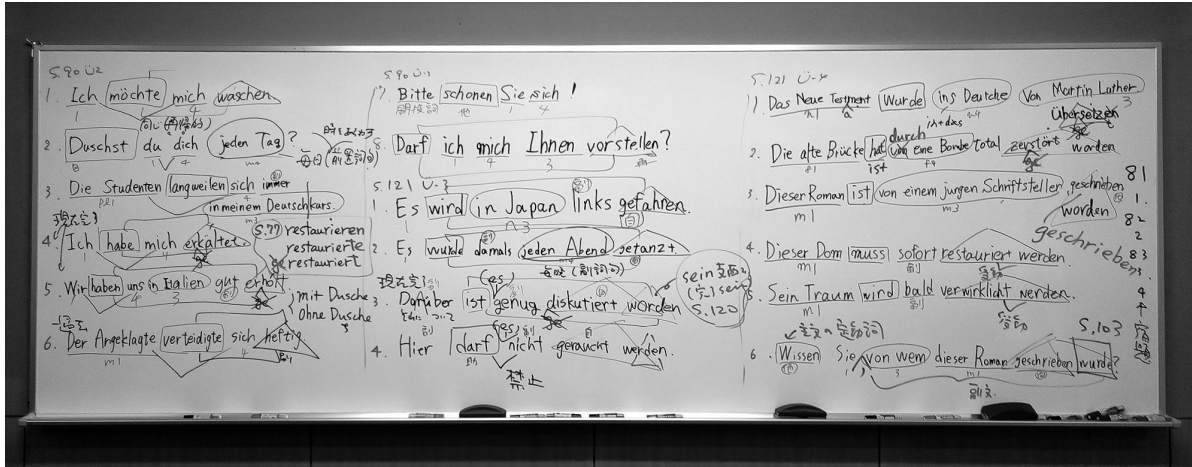 S.90 Ü2
1. Ich möchte mich waschen.
1 4
2. Duschst du dich jeden Tag?
1 4
3. Die Studenten langweilen sich immer
in meinem Deutschkurs.
m3
現在完了
4. Ich habe mich erkältet.
S.77 restaurieren
restaurierte
restauriert
5. Wir haben uns in Italien gut erholt
4 3
mit Dusche
ohne Dusche
6. Der Angeklagte verteidigte sich heftig
m1 4
S.90 Ü-2
7. Bitte schonen Sie sich!
1 4
8. Darf ich mich Ihnen vorstellen?
1 4 3
S.121 Ü-3
1. Es wird in Japan links gefahren.
n3
2. Es wurde damals jeden Abend getanzt
(es)
3. Darüber ist genug diskutiert worden
sein
sein
S.120
(es)
4. Hier darf nicht geraucht werden.
禁止
S.121 Ü-4
1. Das Neue Testment wurde ins Deutche von Martin Luther
a
n1 in+das n4 3
übersetzen
2. Die alte Brücke hat von eine Bombe total zerstört worden
durch
f1 ist f4
3. Dieser Roman ist von einem jungen Schriftsteller geschrieben
m1 m3
worden
geschrieben
4. Dieser Dom muss sofort restauriert werden.
m1 副
5. Sein Traum wird bald verwirklicht werden.
m1 副
S.103
6. Wissen Sie, von wem dieser Roman geschrieben wurde?
3 m1
副文
81
1.
82
2
83
3.
4